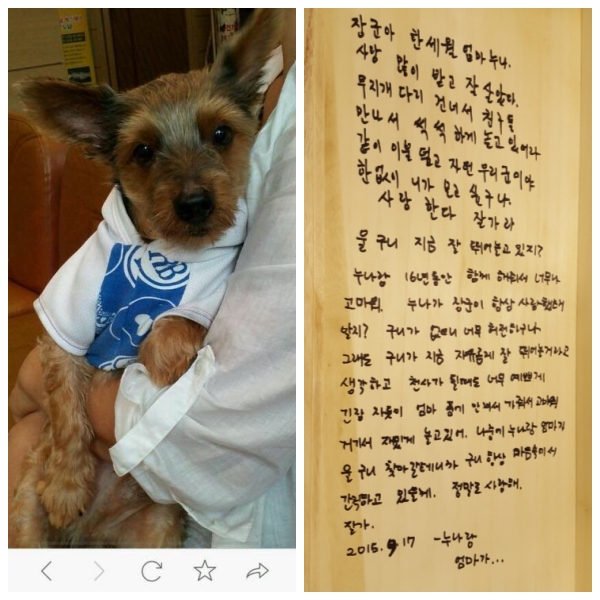 장군아 한세월 엄마누나.
사랑 많이 받고 잘 살았다.
무지개 다리 건너서 친구들
만나서 씩씩하게 놀고 있어라
같이 이불 덮고 자던 우리군이야
한없이 니가 보고 싶구나.
사랑 한다 잘가라
울 구니 지금 잘 뛰어놀고 있지?
누나랑 16년동안 함께 해줘서 너무나
고마워. 누나가 장군이 항상 사랑했던거
알지? 구니가 없으니 너무 허전하구나
그래도 구니가 지금 자유롭게 잘 뛰어놀거라고
생각하고 천사가 될때도 너무 예쁘게
긴장 자듯이 엄마 품에 안겨서 가줘서 고마워
거기서 재밌게 놀고있어. 나중에 누나랑 엄마가
울 구니 찾아갈테니까 구니 항상 마음속에서
간직하고 있을게. 정말로 사랑해.
잘가.
2015. 9 17 -누나랑
엄마가...